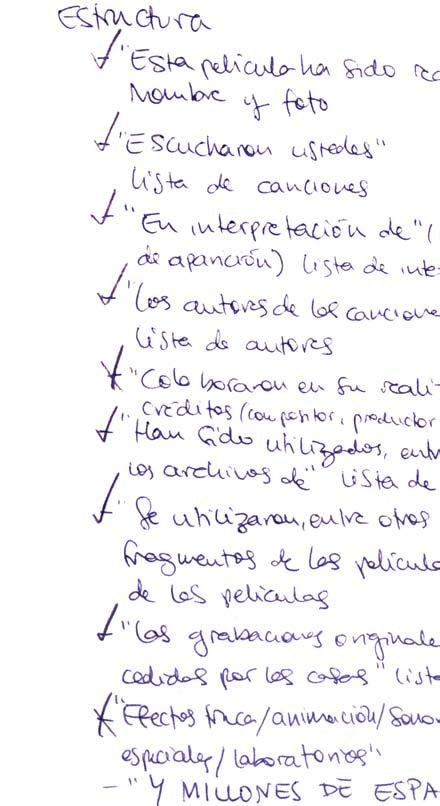 Estructura
"Esta película ha sido
Nombre y foto
"Escucharon ustedes"
lista de canciones
"En interpretación de" (
de aparición) lista de
"Los autores de las
lista de autores
"Colaboraron en su
Créditos (compositor, productor
"Han sido utilizados,
los archivos de" lista de
"Se utilizaron, entre otros
fragmentos de las
de las películas
"Las grabaciones
cedidas por las casas"
"Efectos truca/animación/
especiales/laboratorios"
- "Y MILLONES DE